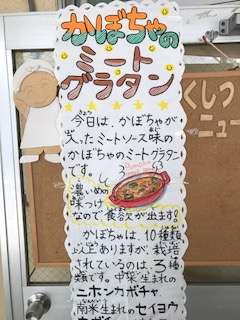 かぼちゃの
ミート
グラタン
今日は、かぼちゃが
入ったミートソース味の
かぼちゃのミートグラタン
です。
濃いめの
味つけ
なので食欲が出ます!
かぼちゃは、10種類
以上ありますが、栽培
されているのは、3種
類です。中米生まれの
ニホンカボチャ
南米生まれのセイヨウ
くしつ
ニュー